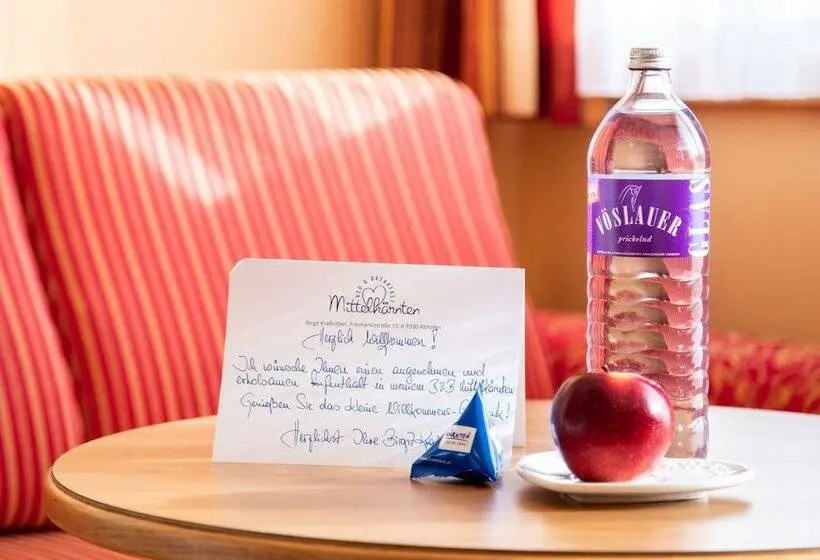 BED & BREAKFAST
Mittelkärnten
Birgit Kraßnitzer, Freimarktstraße 10, A 9330 Althofen
Herzlich Willkommen!
Ich wünsche Ihnen einen angenehmen und
erholsamen Aufenthalt in meinem B&B Mittelkärnten
Genießen Sie das kleine Willkommens-G !
Herzlichst Ihre Birgit
KÄRNTEN
VÖSLAUER
prickelnd
GLAS